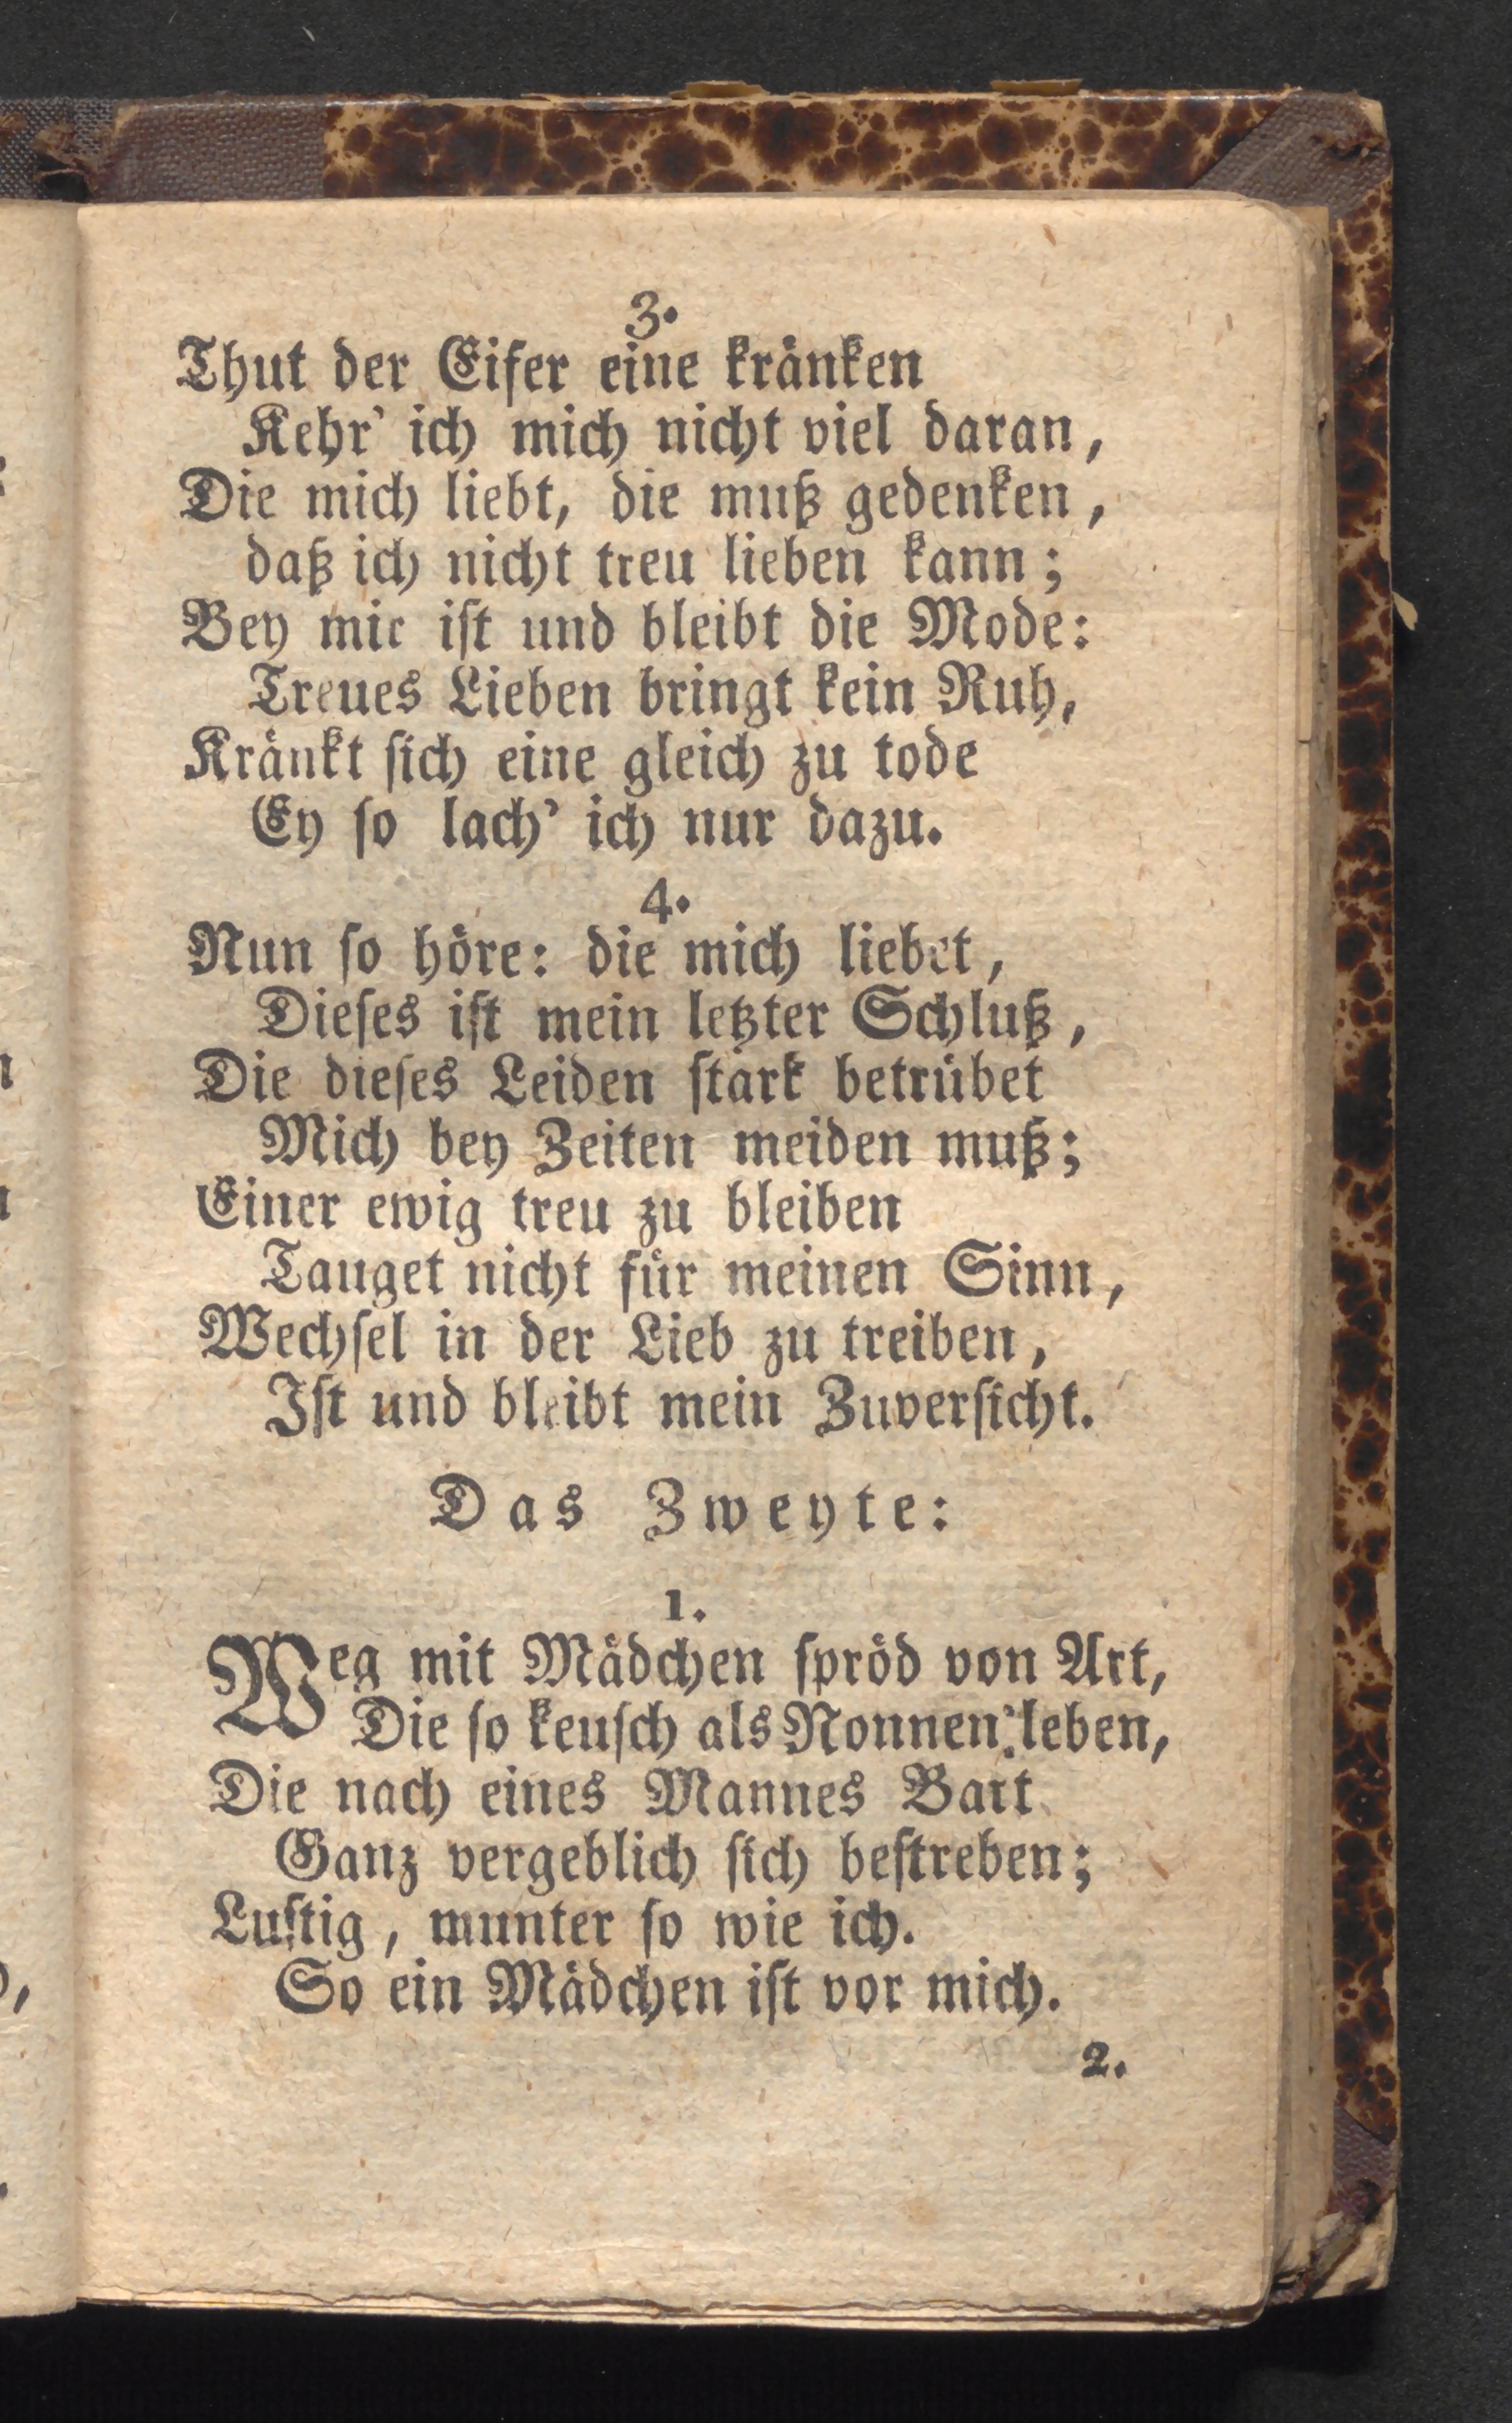 3.
Thut der Eifer eine kränken
Kehr' ich mich nicht viel daran,
Die mich liebt, die muß gedenken,
daß ich nicht treu lieben kann;
Bey mir ist und bleibt die Mode:
Treues Lieben bringt kein Ruh,
Kränkt sich eine gleich zu tode
Ey so lach' ich nur dazu.
4.
Nun so höre: die mich liebet,
Dieses ist mein letzter Schluß,
Die dieses Leiden stark betrübet
Mich bey Zeiten meiden muß;
Einer ewig treu zu bleiben
Tauget nicht für meinen Sinn,
Wechsel in der Lieb zu treiben,
Ist und bleibt mein Zuversicht.
Das Zweyte:
1.
Weg mit Mädchen spröd von Art,
Die so keusch als Nonnen leben,
Die nach eines Mannes Bart
Ganz vergeblich sich bestreben;
Lustig, munter so wie ich.
So ein Mädchen ist vor mich.
2.